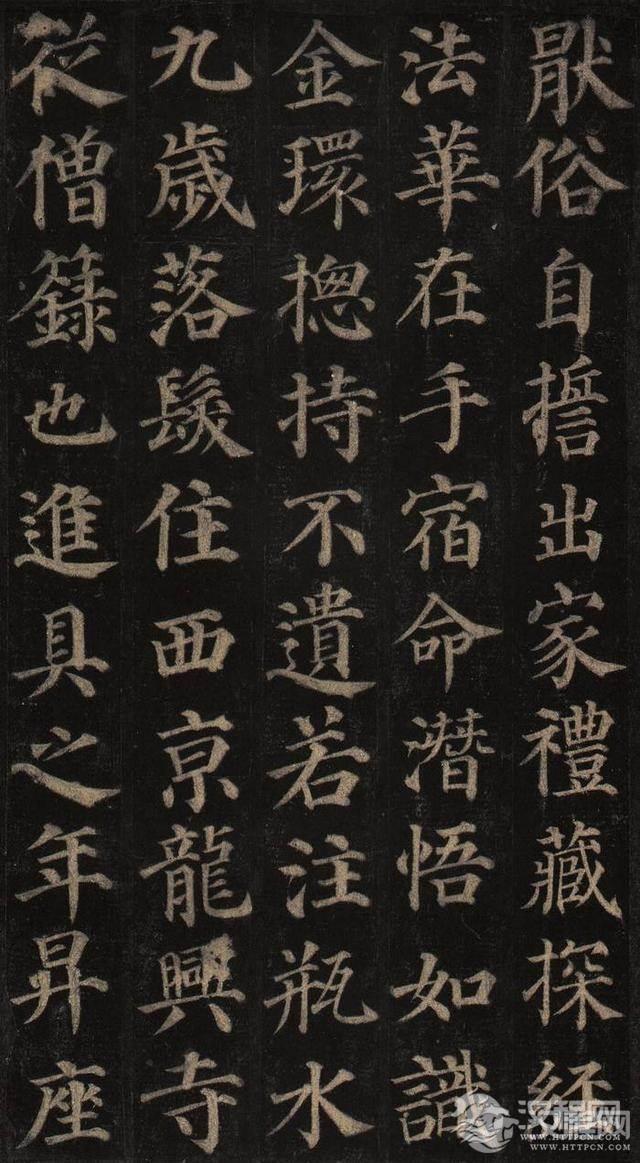 猒俗自誓出家禮藏探經
法華在手宿命潛悟如識
金環揔持不遺若注瓶水
九歲落髮住西京龍興寺
從僧籙也進具之年昇座
汉程网
WWW.HTTPCN.COM